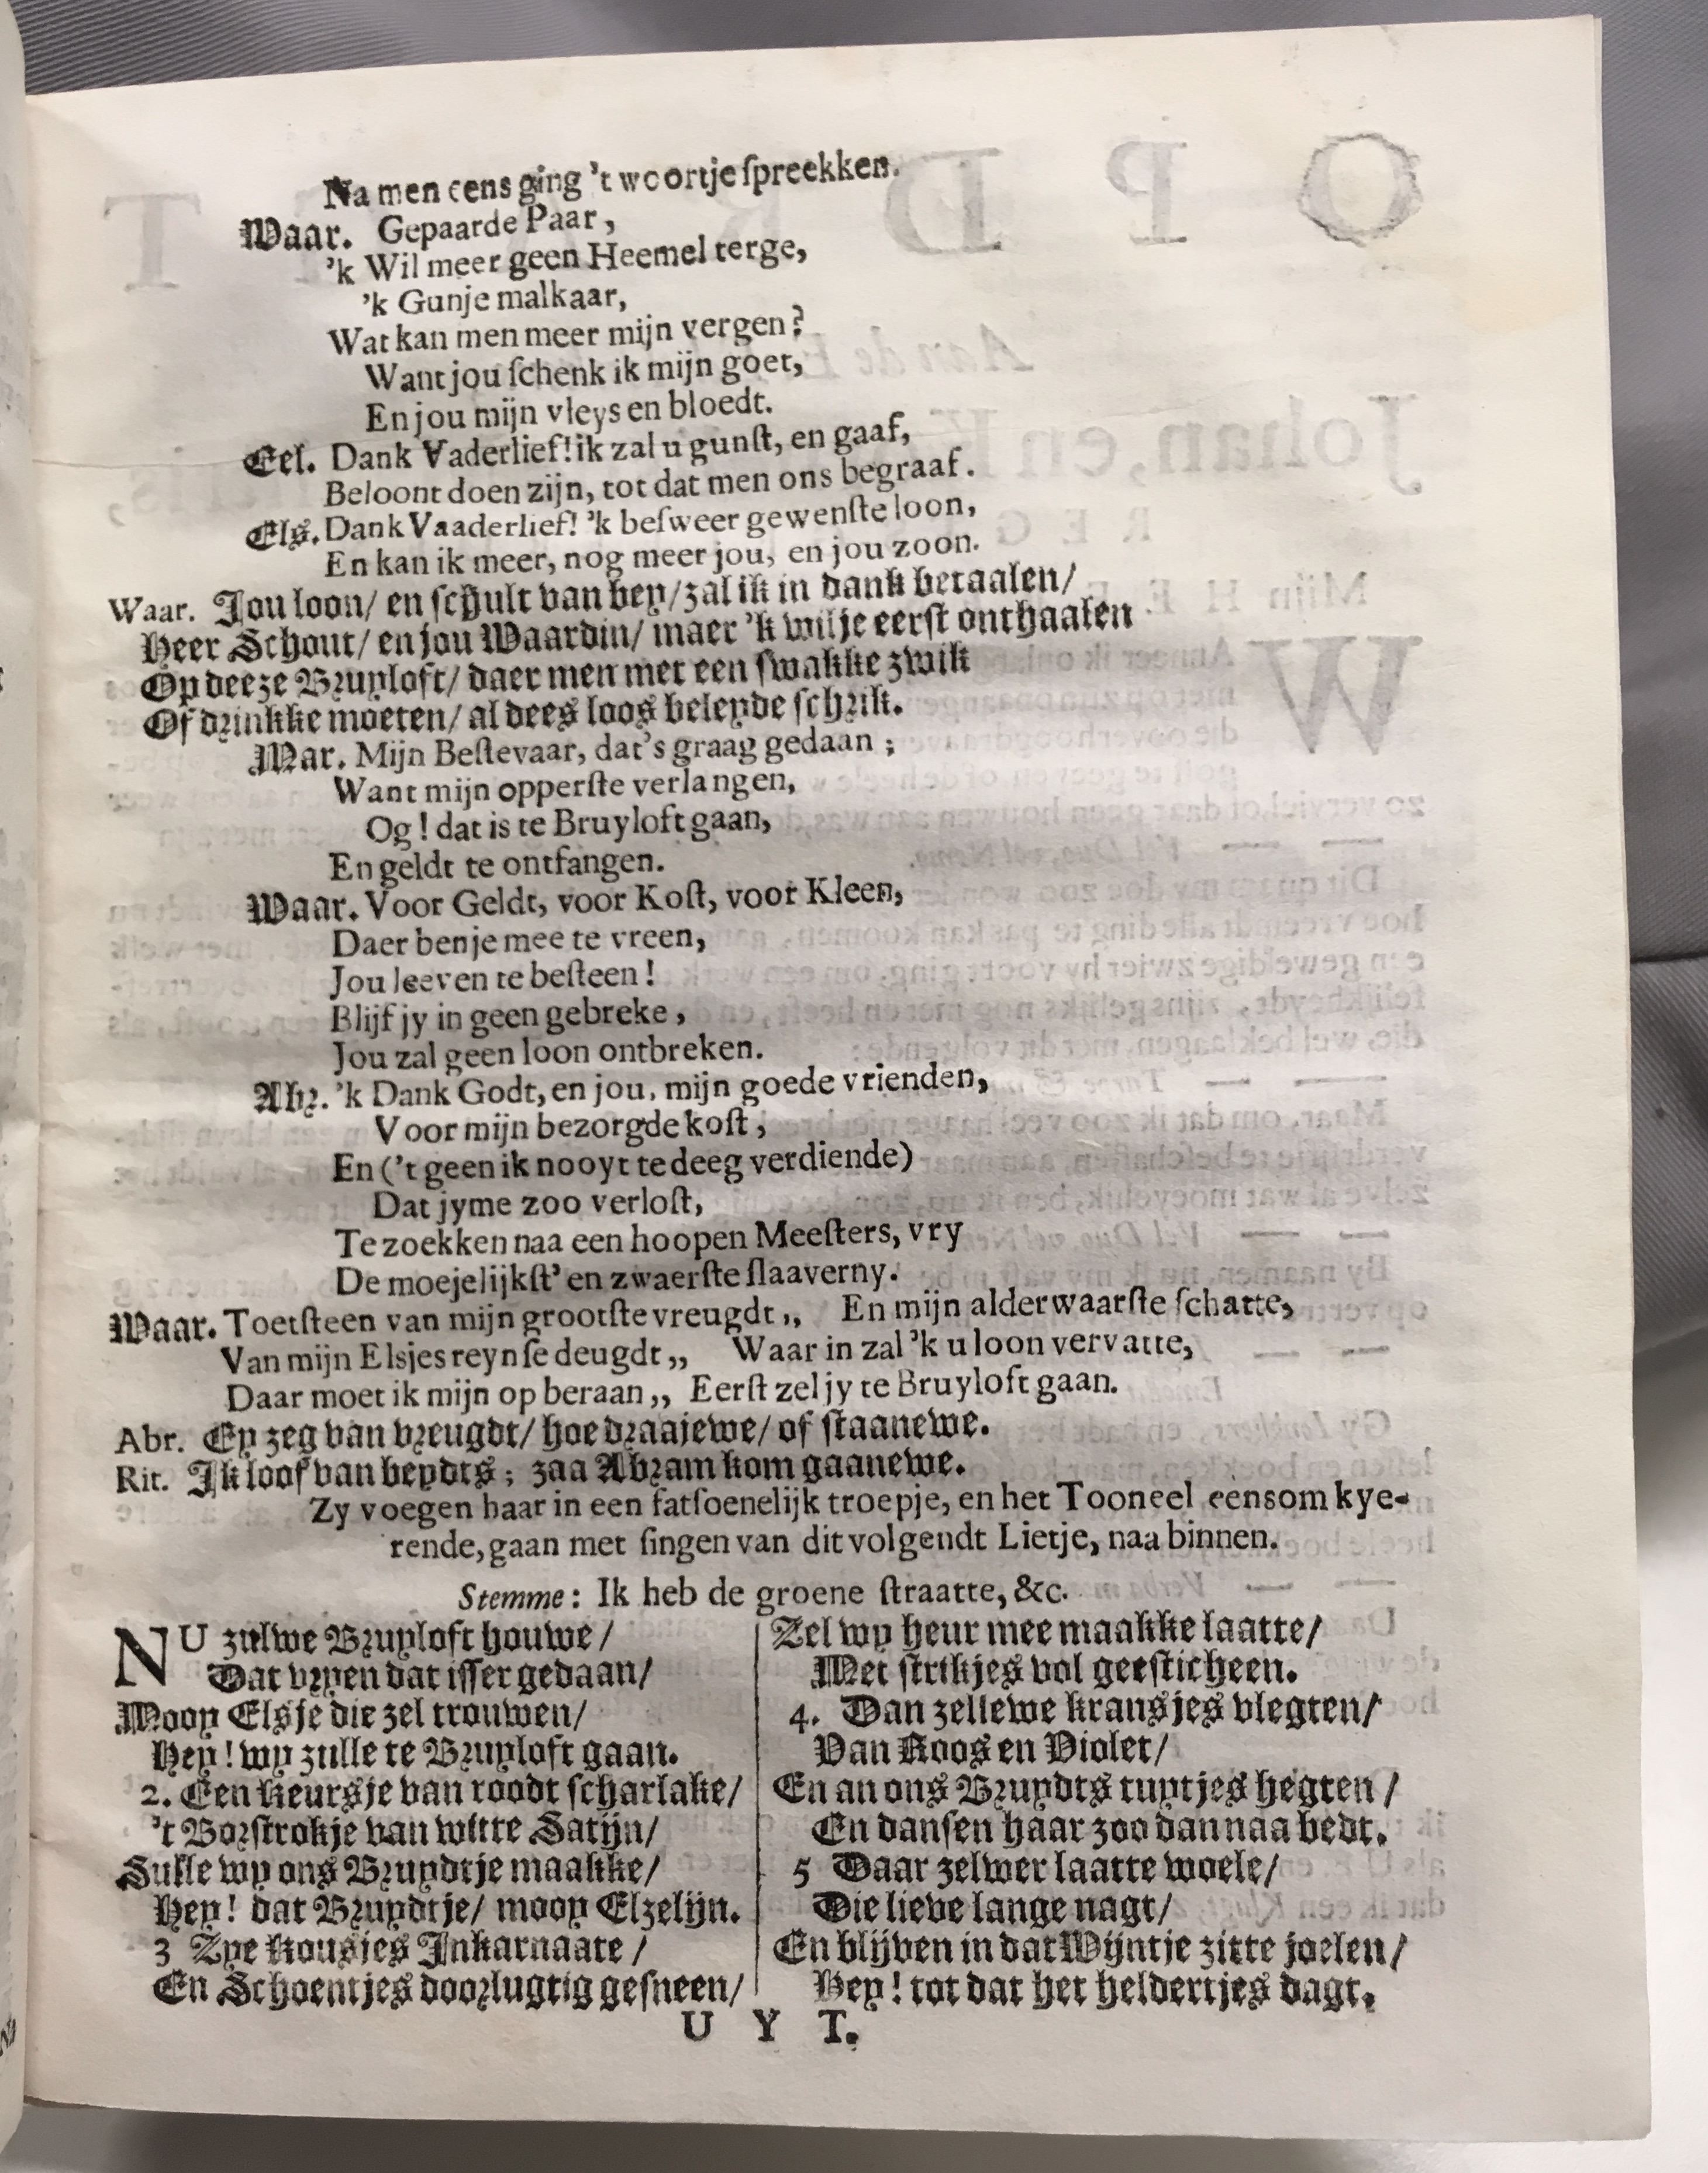 Na men eens ging 't woortje ſpreekken.
Waar. Gepaarde Paar,
'k Wil meer geen Heemel terge,
'k Gunje malkaar,
Wat kan men meer mijn vergen?
Want jou ſchenk ik mijn goet,
En jou mijn vleys en bloedt.
Eel. Dank Vaderlief! ik zal u gunſt, en gaaf,
Beloont doen zijn, tot dat men ons begraaf.
Els. Dank Vaaderlief! 'k beſweer gewenſte loon,
En kan ik meer, nog meer jou, en jou zoon.
Waar. Jou loon/ en ſchult van bey/ zal ik in dank betaalen/
Heer Schout/ en jou Waardin/ maer 'k wil je eerſt onthaalen
Op deeze Bruyloft/ daer men met een ſwakke zwik
Of drinkke moeten/ al dees loos beleyde ſchrik.
Mar. Mijn Beſtevaar, dat's graag gedaan;
Want mijn opperſte verlangen,
Og! dat is te Bruyloft gaan,
En geldt te ontfangen.
Waar. Voor Geldt, voor Koſt, voor Kleen,
Daer ben je mee te vreen,
Jou leeven te beſteen!
Blijf jy in geen gebreke,
Jou zal geen loon ontbreken.
Abr. 'k Dank Godt, en jou, mijn goede vrienden,
Voor mijn bezorgde koſt,
En ('t geen ik nooyt te deeg verdiende)
Dat jyme zoo verloſt,
Te zoekken naa een hoopen Meeſters, vry
De moejelijkſt' en zwaerſte ſlaaverny.
Waar. Toetſteen van mijn grootſte vreugdt,, En mijn alderwaarſte ſchatte,
Van mijn Elsjes reynſe deugdt,, Waar in zal 'k u loon vervatte,
Daar moet ik mijn op beraan,, Eerſt zel jy te Bruyloft gaan.
Abr. Ey zeg van vreugdt/ hoe draajewe/ of ſtaanewe.
Rit. Ik loof van beydts; zaa Abram kom gaanewe.
Zy voegen haar in een fatſoenelijk troepje, en het Tooneel eens om kye-
rende, gaan met ſingen van dit volgendt Lietje, naa binnen.
Stemme: Ik heb de groene ſtraatte, &c.
NU zulwe Bruyloft houwe/
Dat vryen dat iſſer gedaan/
Mooy Elsje die zel trouwen/
Hey! wy zulle te Bruyloft gaan.
2. Een keursje van roodt ſcharlake/
't Borſtrokje van witte Satijn/
Sulle wy ons Bruydtje maakke/
Hey! dat Bruydtje/ mooy Elzelijn.
3 Zye kousjes Inkarnaate/
En Schoentjes doorlugtig geſneen/
Zel wy heur mee maakke laatte/
Met ſtrikjes vol geeſticheen.
4. Dan zellewe kransjes vlegten/
Van Roos en Violet/
En an ons Bruydts tuytjes hegten/
En danſen haar zoo dan naa bedt.
5 Daar zelwer laatte woele/
Die lieve lange nagt/
En blijven in dat Wijntje zitte joelen/
Hey! tot dat het heldertjes dagt.
U Y T.